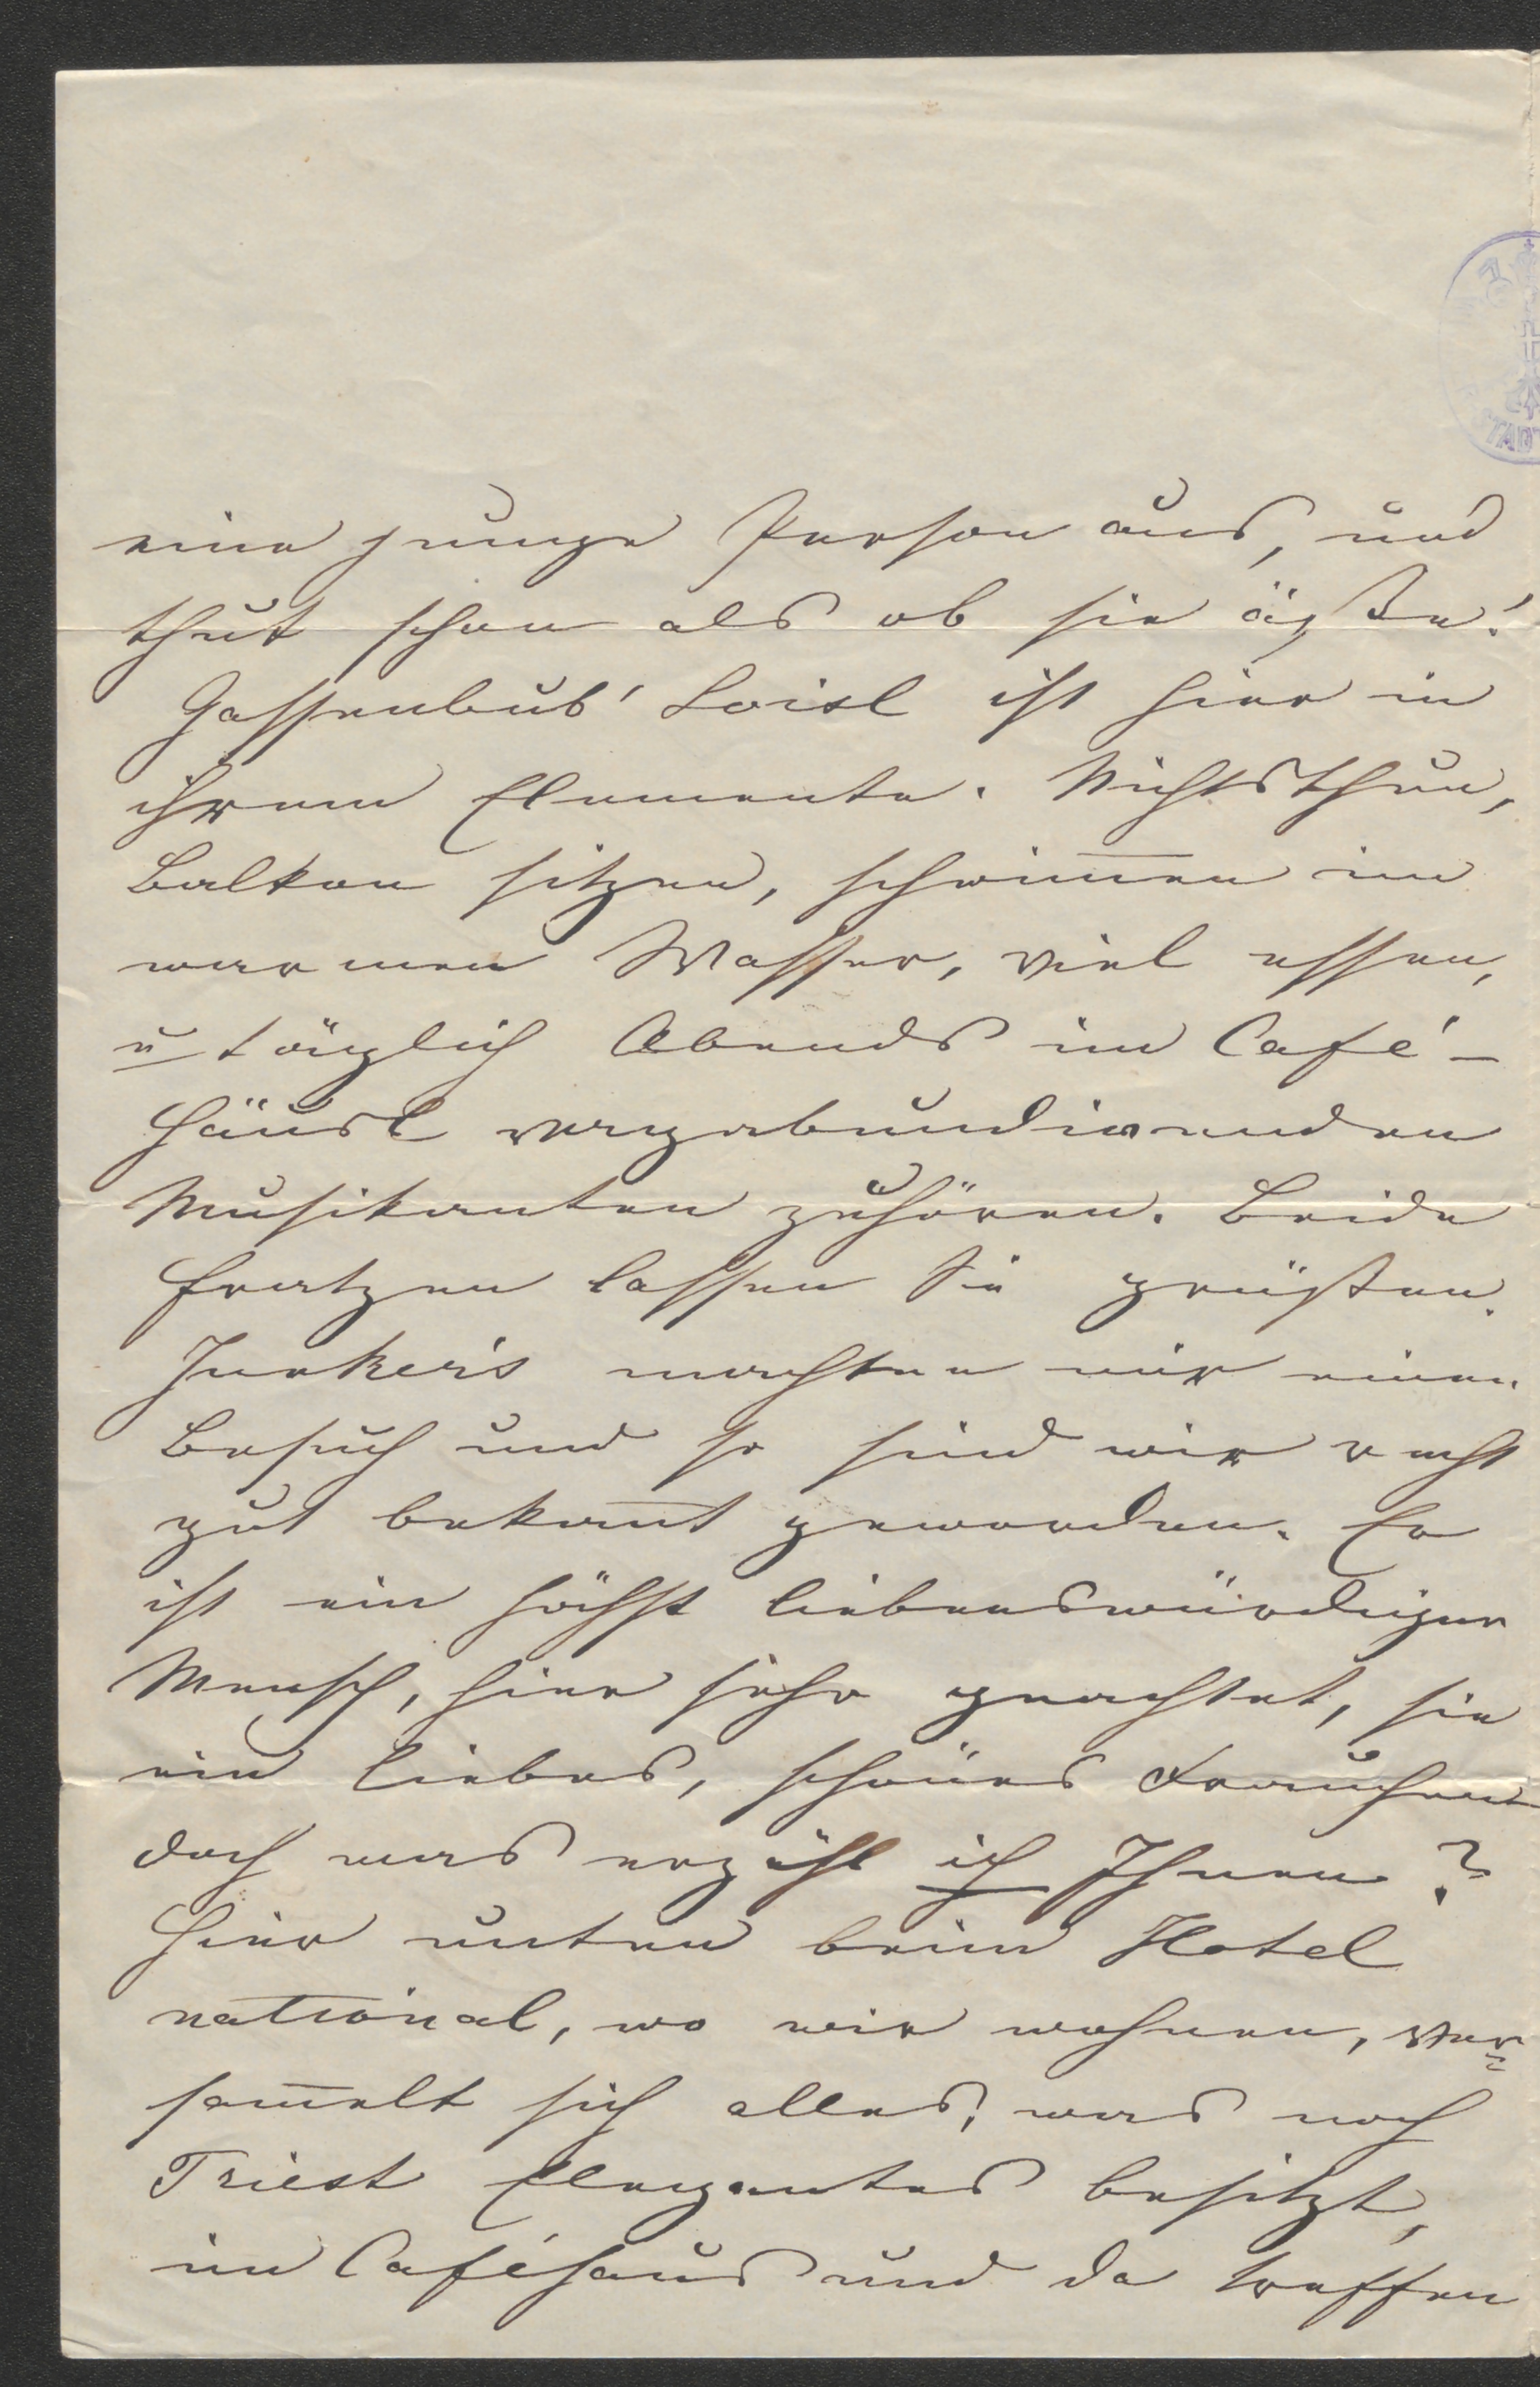 eine junge Person aus, und
thut schon als ob sie äße!
Gassenbub' Loisl ist hier in
ihrem Elemente. Nichtsthun,
Balkon sitzen, schwim̅en im
warmen Wasser, viel essen,
u täglich Abends im Café-
häusl vagabundirenden
Musikanten zuhören. Beide
Fratzen lassen Sie grüßen.
Junker's machten mir einen
Besuch und so sind wir recht
gut bekan̅t geworden. Er
ist ein höchst liebenswürdiger
Mensch, hier sehr geachtet, sie
ein liebes, schönes Frauchen
doch was erzähl ich Ihnen?
Hier unten beim Hotel
national, wo wir wohnen, ver=
sam̅elt sich alles, was noch
Triest Elegantes besitzt,
im Caféhaus und da treffen
STADT